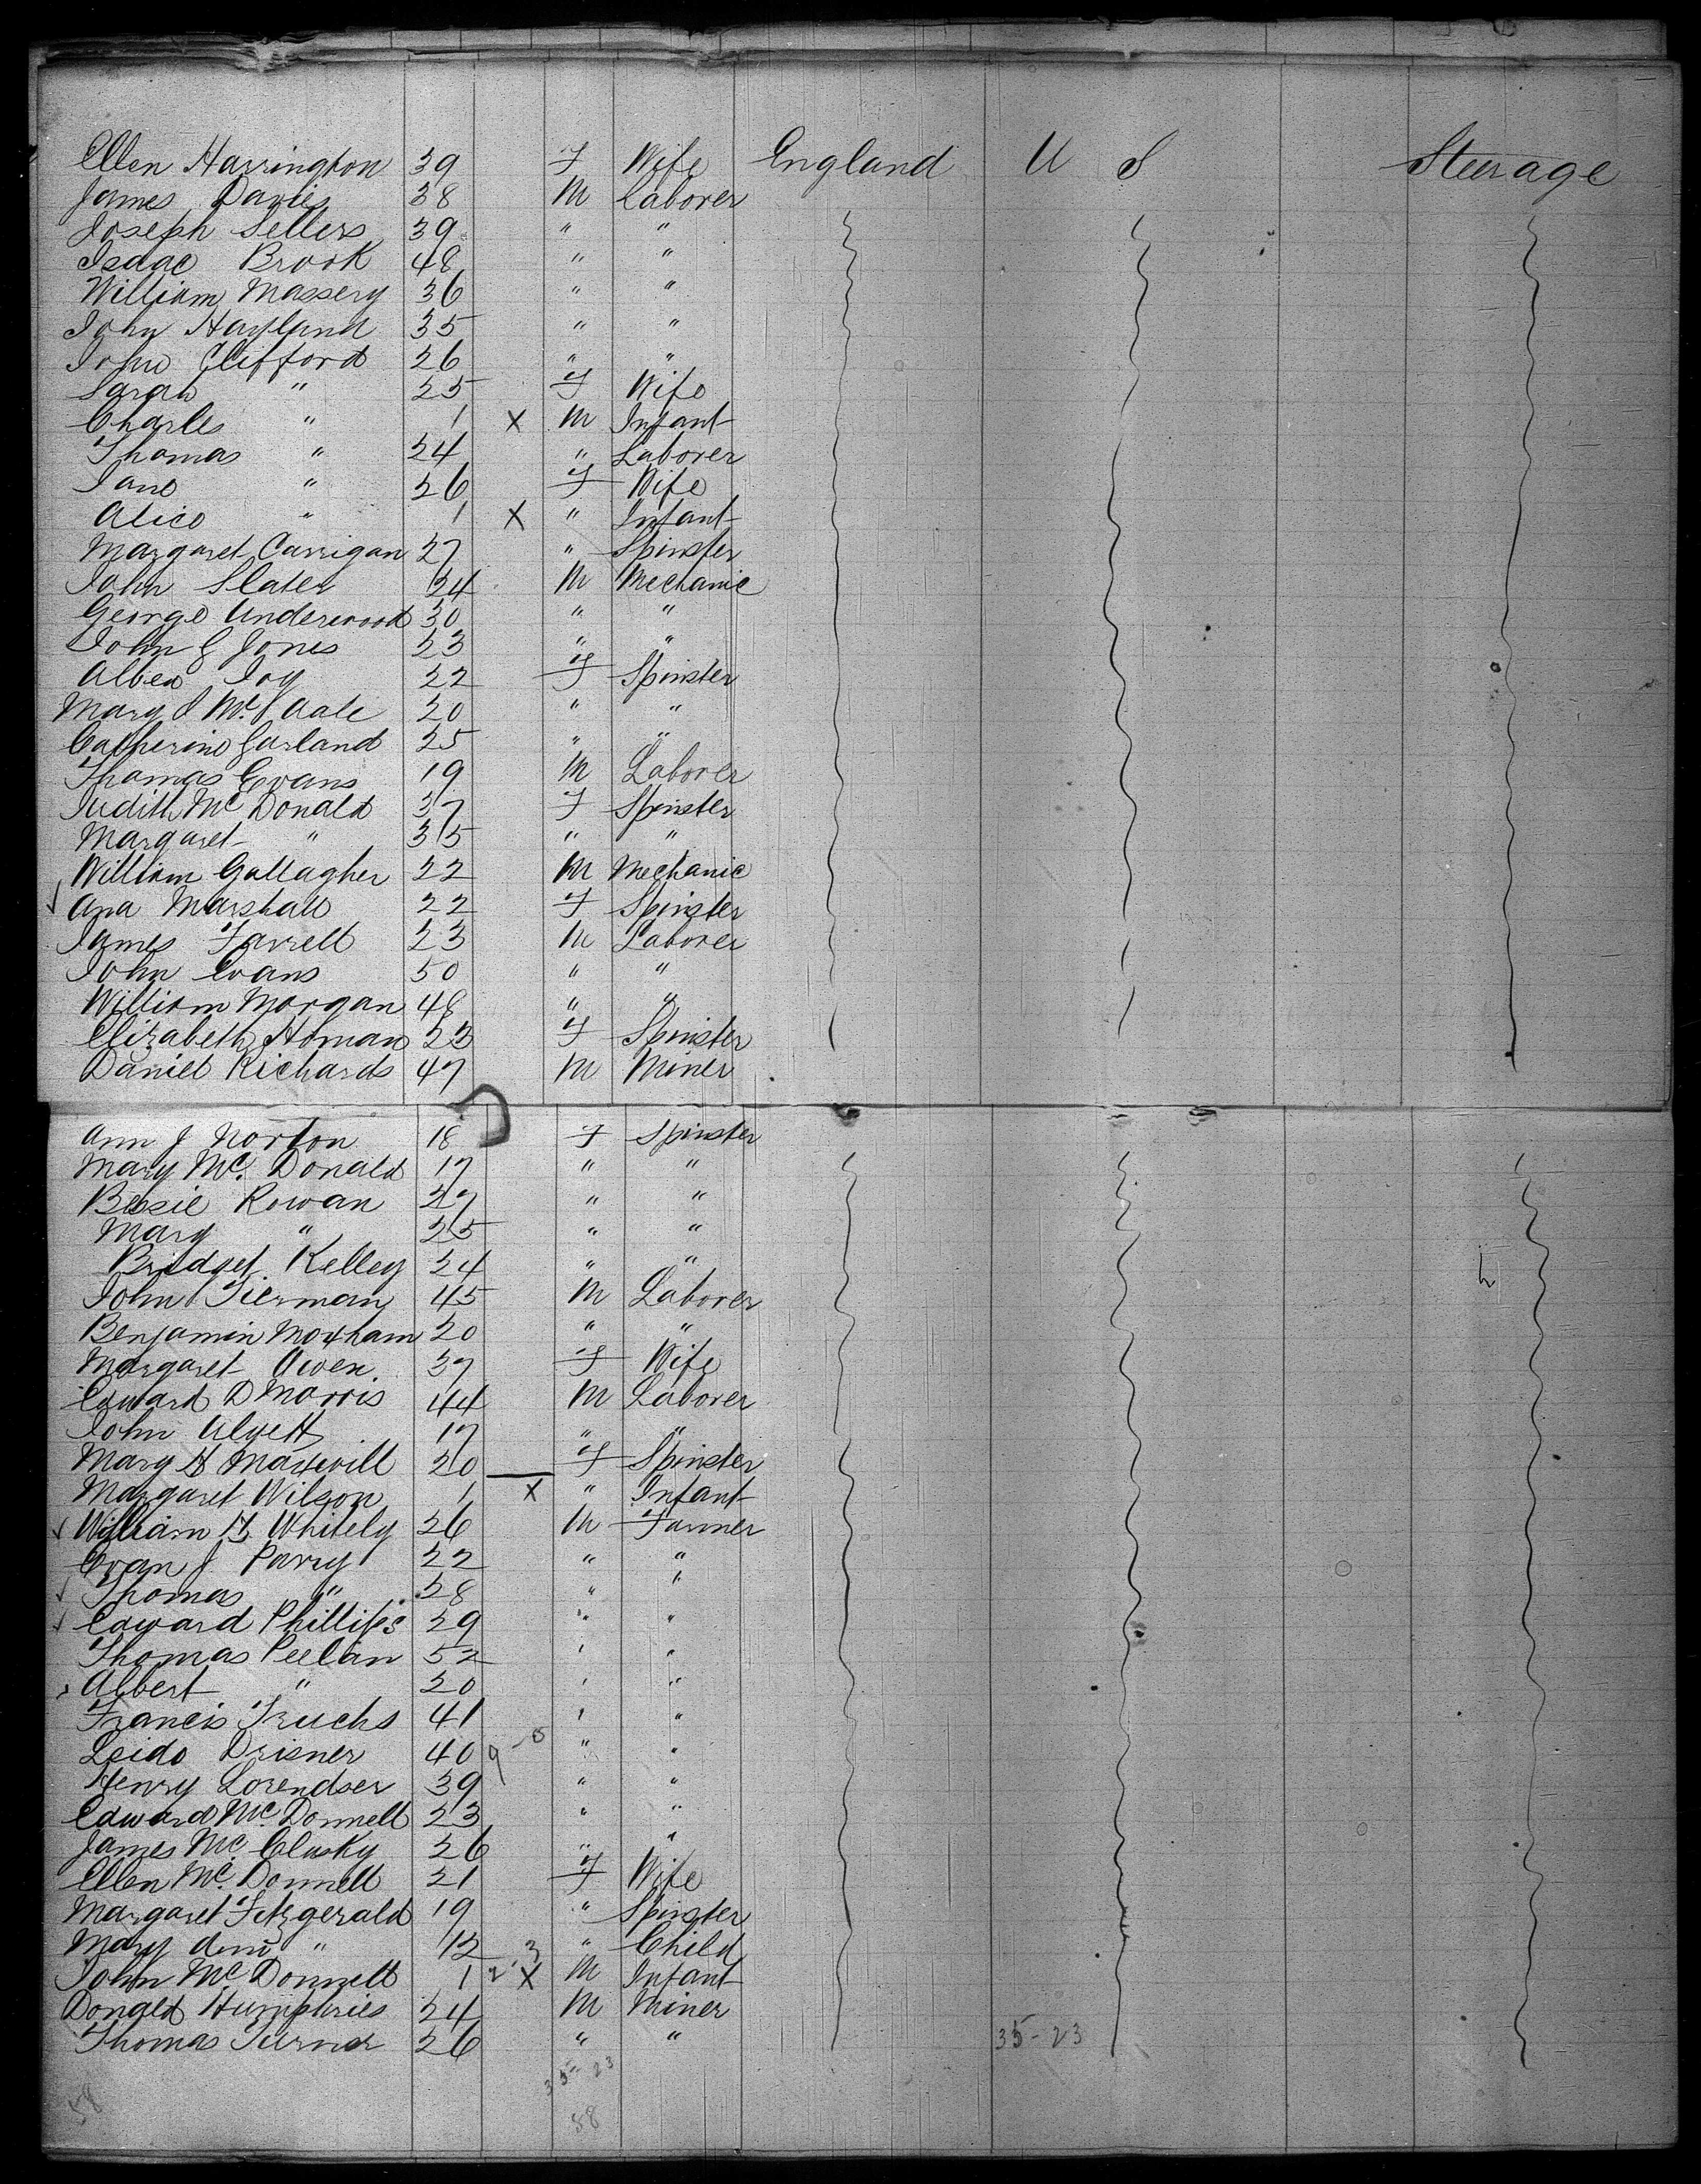 Ellen Harrington 39 F Wife England U S Steerage
James Davies 38 M Laborer
Joseph Sellers 39 " "
Isaac Brook 48 " "
William Massery 36 " "
John Hayland 35 " "
John Clifford 26 " "
Sarah " 25 F Wife
Charles " 1 X M Infant
Thomas " 24 " Laborer
Jane " 26 F Wife
Alice " 1 X " Infant
Margaret Carrigan 27 " Spinster
John Slater 24 M Mechanic
George Underwood 30 " "
John E Jones 23 " "
Joy 22 F Spinster
Mary J Mc 20 " "
Catherine Garland 25 " "
Thomas Evans 19 M Laborer
Judith McDonald 37 F Spinster
Margaret " 35 " "
William Gallagher 22 M Mechanic
Ana Marshall 22 F Spinster
James Farrell 23 M Laborer
John Evans 50 " "
William Morgan 48 " "
Elizabeth Homan 23 F Spinster
Daniel Richards 47 M Miner
Ann J Norton 18 F Spinster
Mary Mc.Donald 17 " "
Bessie Rowan 27 " "
Mary " 25 " "
Bridget Kelley 24 " "
John Tierman 45 M Laborer
Benjamin Moxham 20 " "
Margaret Owen 37 F Wife
Edward D Morris 44 M Laborer
John 17 " "
Mary H Maxwill 20 F Spinster
Margaret Wilson 1 X " Infant
William H Whitely 26 M Farmer
Evan J Parry 22 " "
Thomas " 28 " "
Edward Phillips 29 " "
Thomas Peelan 52 " "
Albert " 20 " "
Francis Truchs 41 " "
Leido Drisner 40 " "
Henry Lorendser 39 " "
Edward McDonnell 23 " "
James McClusky 26 " "
Ellen McDonnell 21 F Wife
Margaret Fitzgerald 19 " Spinster
Mary Ann " 12 " Child
John McDonnell 1 X M Infant
Donald Humphries 24 M Miner
Thomas Turner 26 " " 35-23
35-23
58 58